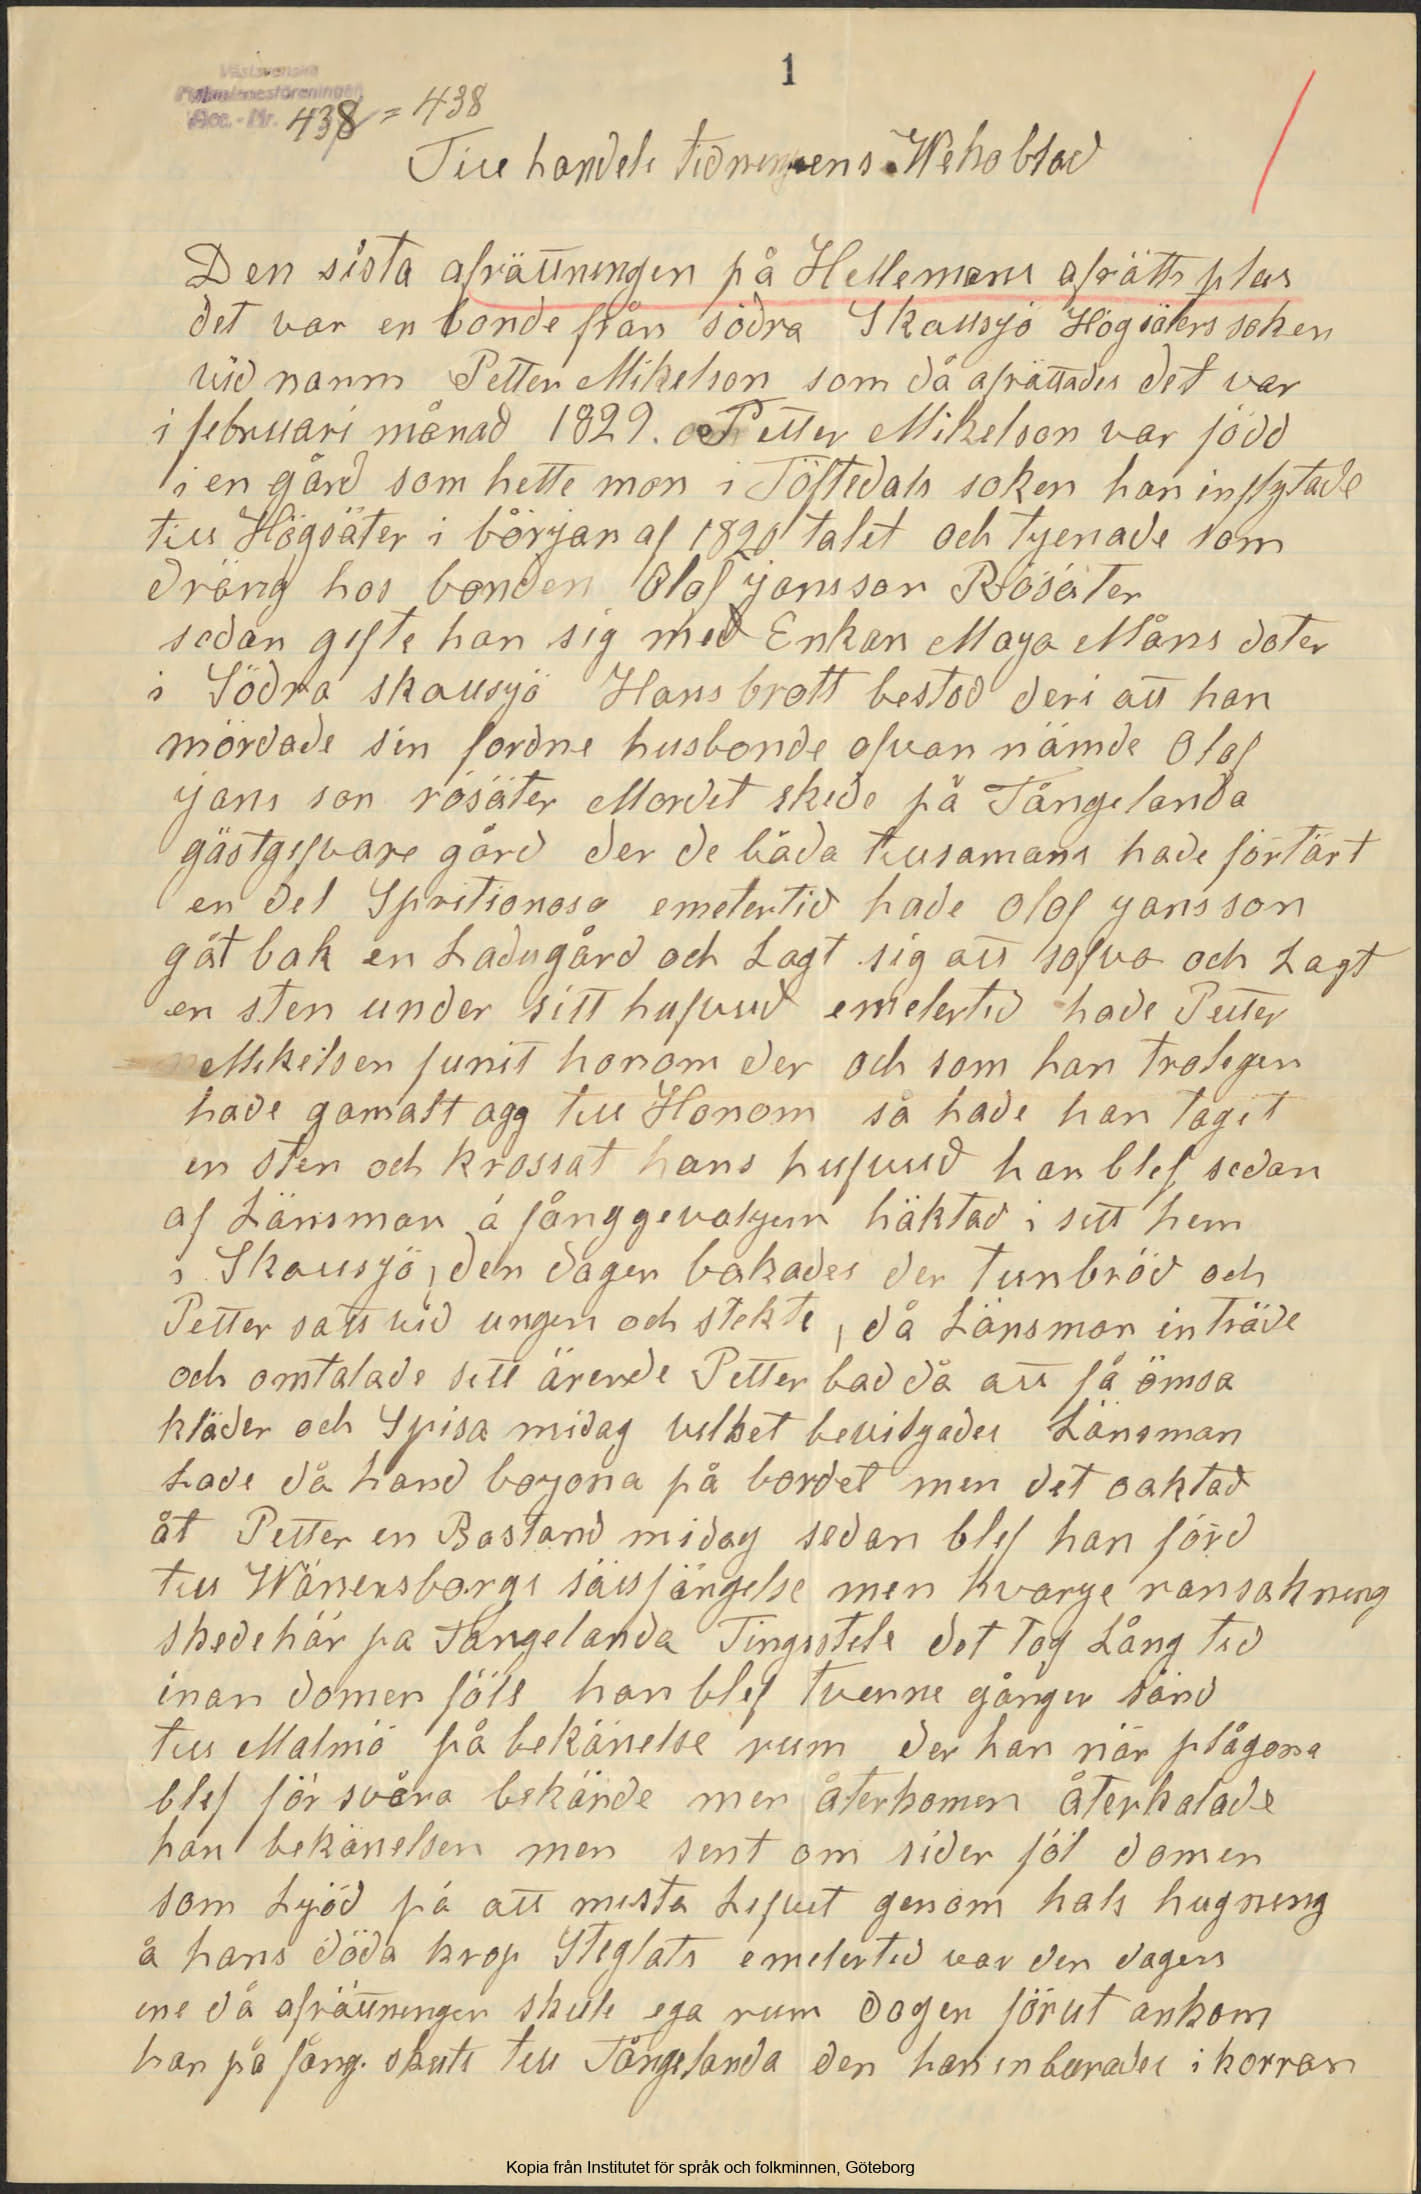 1
Västsvenska
Folkminnesföreningen
Acc.-Nr. 438 = 438
Till handels tidningens Wekoblad
Den sista afrättningen på Hellemans afrätts plas
det var en bonde från södra Skallsjö Högsäters soken
vid namn Petter Mikelson som då afrättades det var
i februari månad 1829. Petter Mikelson var född
i en gård som hette mon i Töftedals soken han inflytade
till Högsäter i början af 1820 talet och tjenade som
dräng hos bonden Olof Jansson Rösäter
sedan gifte han sig med Enkan Maja Måns doter
i Södra skallsjö Hans brott bestod deri att han
mördade sin fordne husbonde ofvan nämde Olof
Jans son rösäter Mordet skede på Tångelanda
gästgifvare gård der de båda tillsamans hade förtärt
en del Spritionosa emelertid hade Olof Jansson
gåt bak en Ladugård och Lagt sig att sofva och Lagt
en sten under sitt hufvud emelertid hade Petter
Mikelson funit honom der och som han troligen
hade gamalt agg till Honom så hade han tagit
en sten och krossat hans hufvud han blef sedan
af Länsman å fånggevaljern häktad i sitt hem
i Skallsjö, den dagen bakades der tunbröd och
Petter satt vid ungen och stekte, då Länsman inträde
och omtalade sitt ärende Petter bad då att få ömsa
kläder och Spisa midag vilket beviljades Länsman
Lade då hand bojona på bordet men det oaktad
åt Petter en Bastand midag sedan blef han förd
till Wänersborgs sälsfängelse men hvarje ransakning
skede här på Tångelanda Tingsstele det tog Lång tid
inan domen föll han blef tvenne gånger sänd
till Malmö på bekänelse rum der han när plågona
blef för svåra bekände men återkomen återkalade
han bekänelsen men sent om sider föl domen
som Ljöd på att mista Lifvet genom hals hugning
å hans döda krop Steglats emelertid var den dagen
ine då afrättningen skule ega rum dagen förut ankom
han på fång skuts till Tångelanda den han inburades i korran
Kopia från Institutet för språk och folkminnen, Göteborg